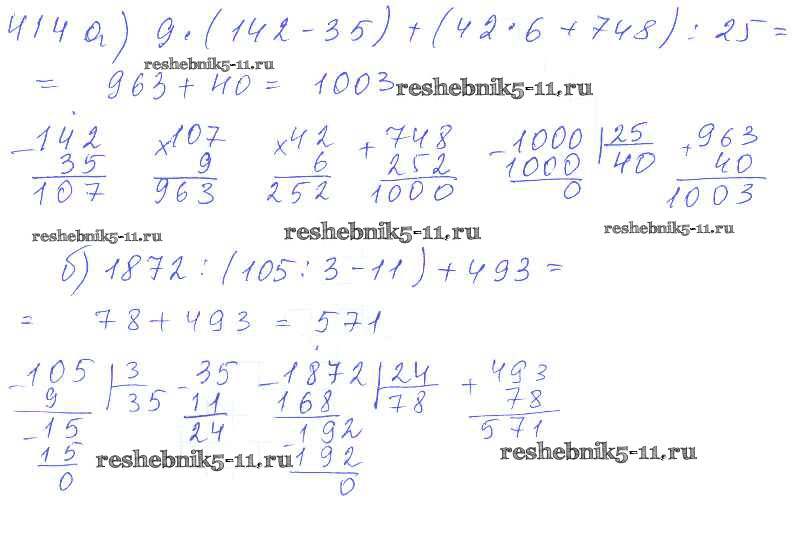 414 а) 9 · (142 - 35) + (42 · 6 + 748) : 25 =
reshebnik5-11.ru
= 963 + 40 = 1003
reshebnik5-11.ru
- 142 × 107 × 42 + 748 - 1000 | 25 + 963
35 9 6 252 1000 | 40 40
107 963 252 1000 0 1003
reshebnik5-11.ru reshebnik5-11.ru reshebnik5-11.ru
б) 1872 : (105 : 3 - 11) + 493 =
= 78 + 493 = 571
- 105 | 3 - 35 - 1872 | 24 + 493
9 | 35 11 168 | 78 78
- 15 24 - 192 571
15 192
reshebnik5-11.ru reshebnik5-11.ru
0 0